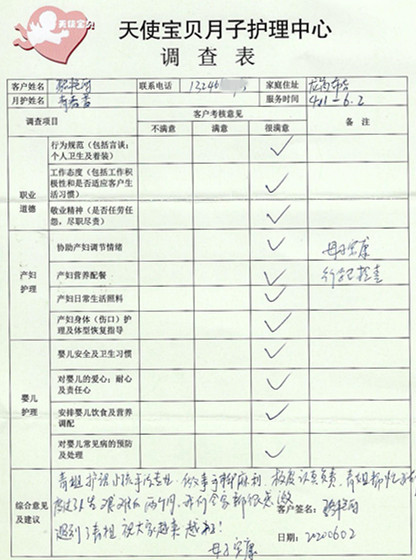 天使宝贝
天使宝贝月子护理中心
调查表
客户姓名 联系电话 13246 家庭住址
月护姓名 服务时间 4.1-6.2
调查项目 客户考核意见 备 注
不满意 满意 很满意
职业道德
行为规范（包括言谈；
个人卫生及着装）
工作态度（包括工作积
极性和是否适应客户生
活习惯）
敬业精神（是否任劳任
怨，尽职尽责）
产妇护理
协助产妇调节情绪 母子安康
产妇营养配餐
产妇日常生活照料
产妇身体（伤口）护
理及体型恢复指导
婴儿护理
婴儿安全及卫生习惯
对婴儿的爱心；耐心
及责任心
安排婴儿饮食及营养
调配
对婴儿常见病的预防
及处理
综合意见及建议
做事干脆麻利，极度认真负责
两个月，我们全家都很感激
客户签名：
遇到了青姐 祝大家越来越好！
日期：20200602
母子安康